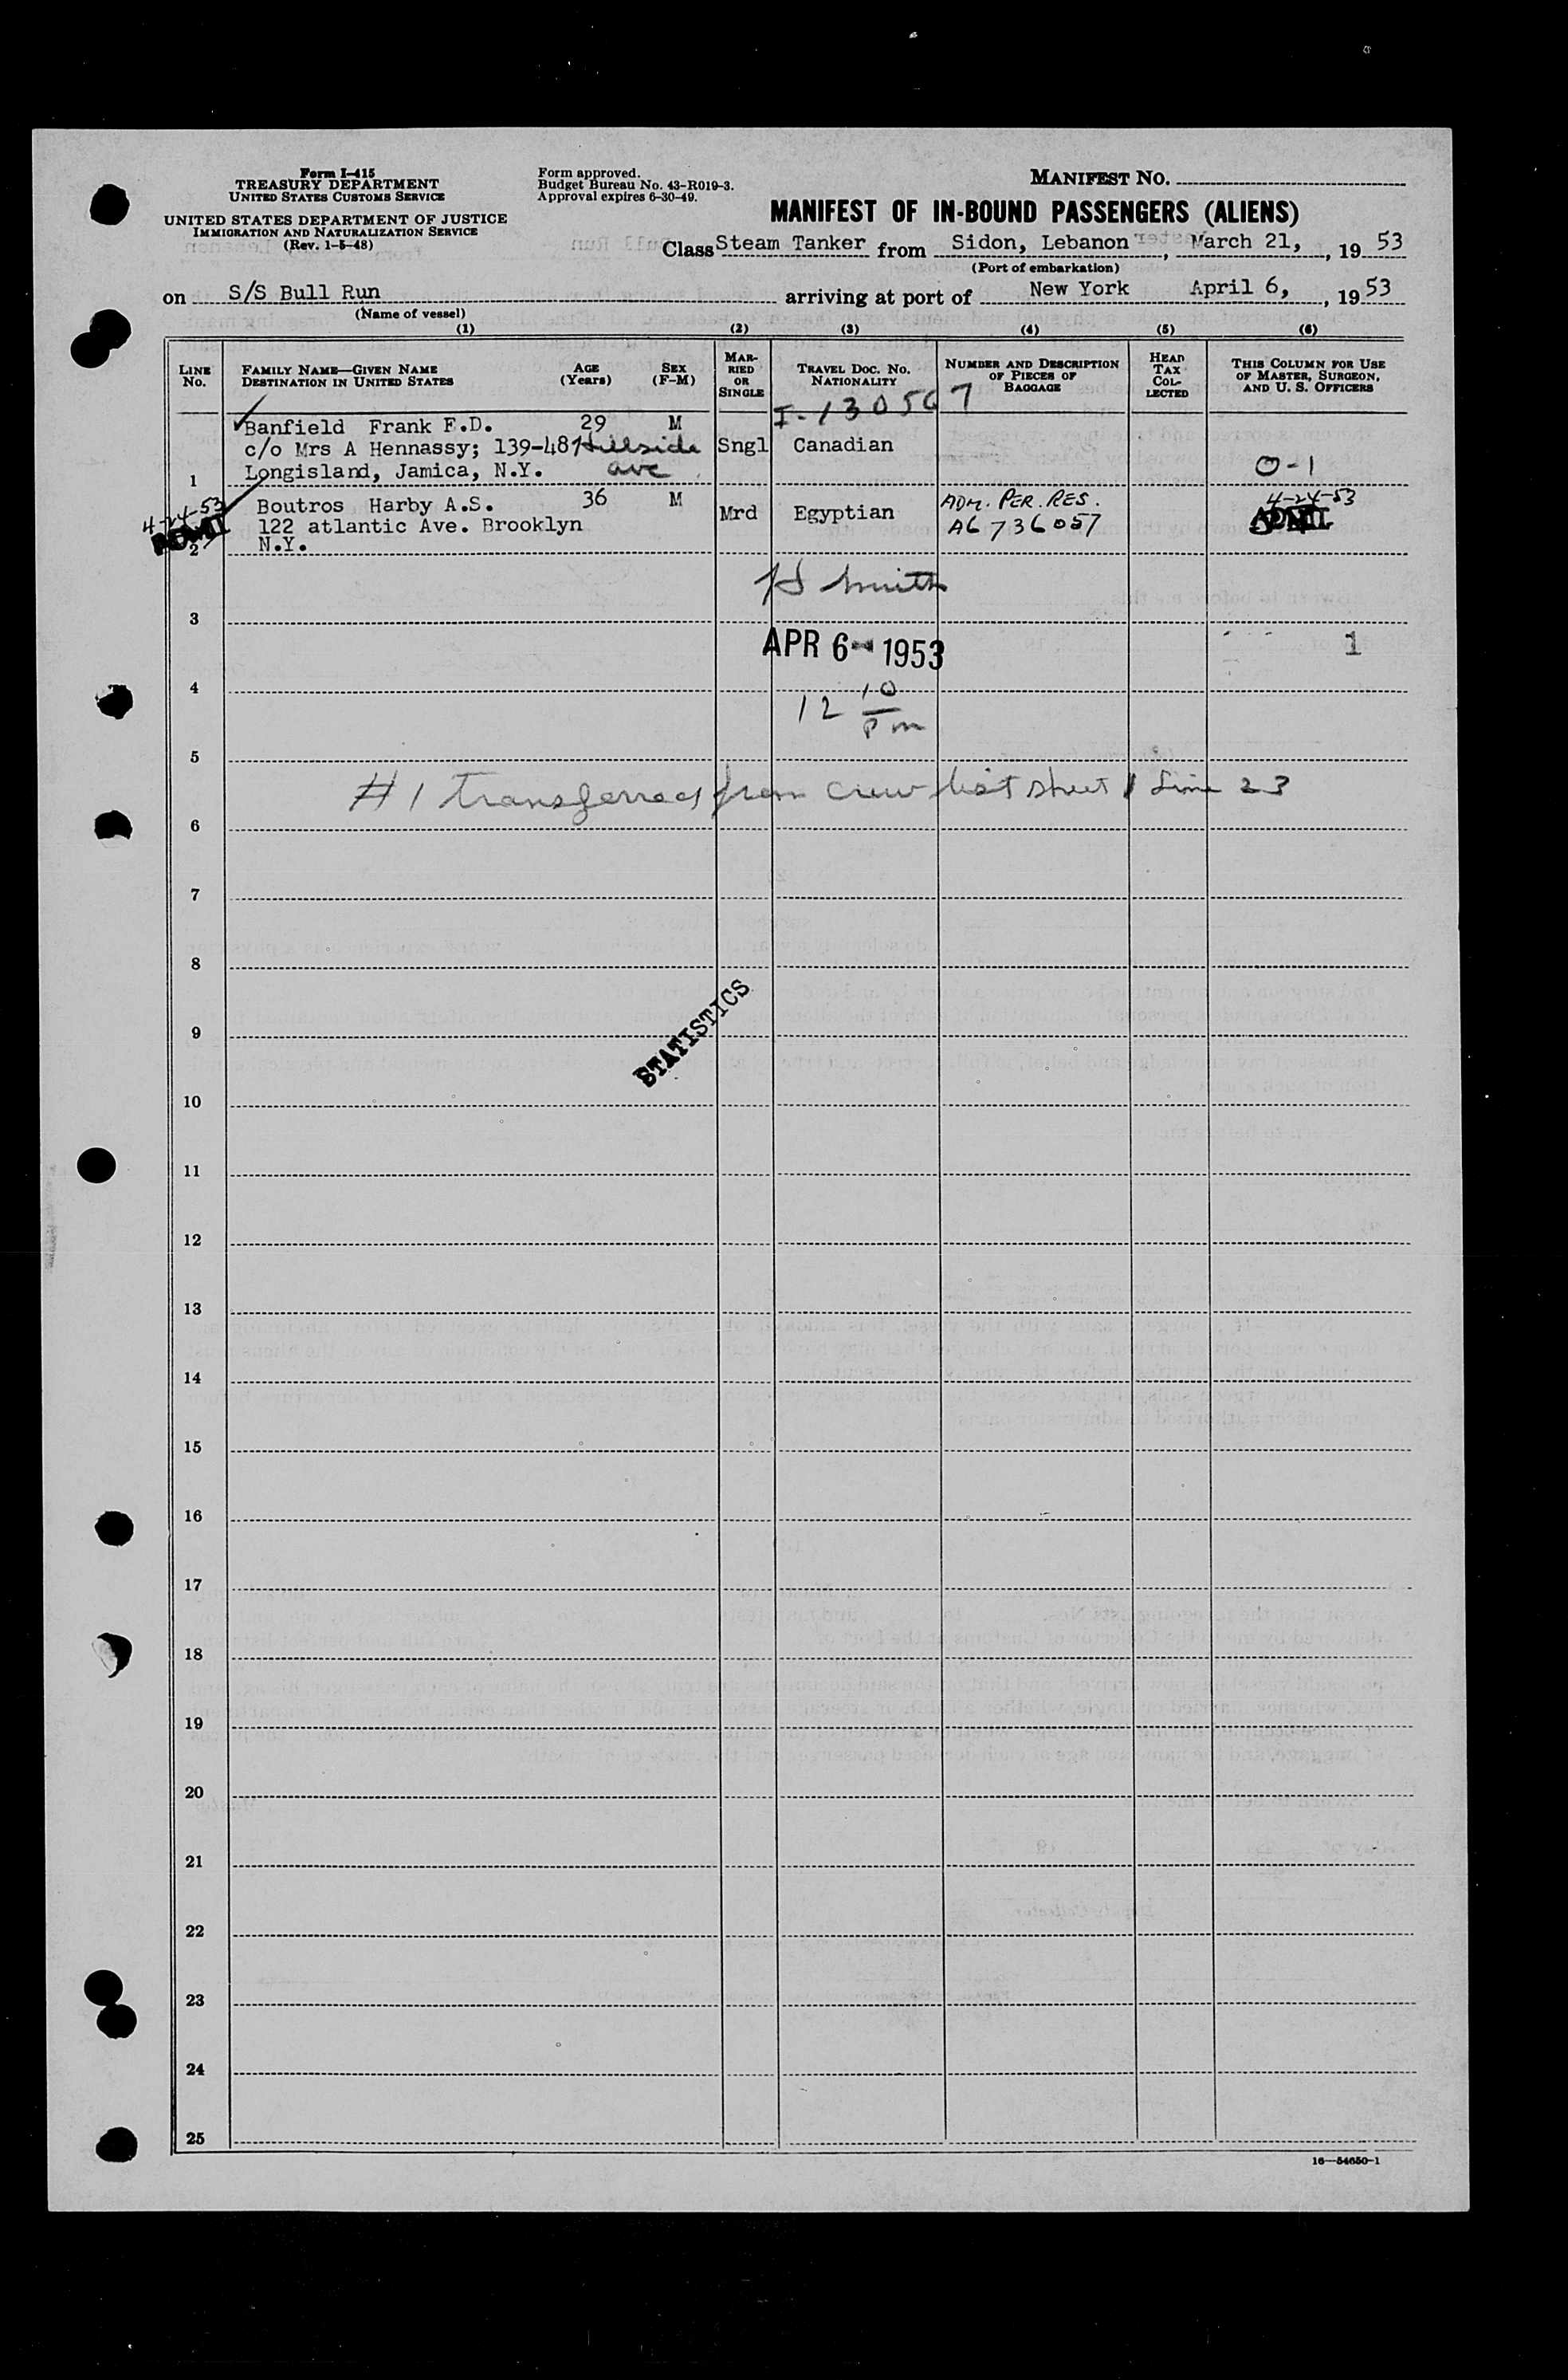 Form I-415
TREASURY DEPARTMENT
UNITED STATES CUSTOMS SERVICE
UNITED STATES DEPARTMENT OF JUSTICE
IMMIGRATION AND NATURALIZATION SERVICE
(Rev. 1-5-48)
Form approved.
Budget Bureau No. 43-R019-3.
Approval expires 6-30-49.
MANIFEST NO.
MANIFEST OF IN-BOUND PASSENGERS (ALIENS)
Class Steam Tanker from Sidon, Lebanon, March 21, , 19 53
(Port of embarkation)
on S/S Bull Run arriving at port of New York April 6, , 19 53
(Name of vessel)
(1) (2) (3) (4) (5) (6)
LINE NO.
FAMILY NAME—GIVEN NAME
DESTINATION IN UNITED STATES
AGE (Years)
SEX (F-M)
MAR-
RIED
OR
SINGLE
TRAVEL DOC. NO.
NATIONALITY
NUMBER AND DESCRIPTION
OF PIECES OF
BAGGAGE
HEAD
TAX
COL-
LECTED
THIS COLUMN FOR USE
OF MASTER, SURGEON,
AND U. S. OFFICERS
I-130567
Banfield Frank F.D. 29 M
c/o Mrs A Hennassy; 139-48 Hillside Sngl Canadian
1 Longisland, Jamica, N.Y. ave O-1
4-24-53 Boutros Harby A.S. 36 M ADM. PER. RES. 4-24-53
ADMIT 122 atlantic Ave. Brooklyn Mrd Egyptian A6 736057 ADMIT
2 N.Y.
HS Smith
3
APR 6 1953 1
4
12 10
pm
5
#1 transferred from crew list sheet 1 Line 23
6
7
8
STATISTICS
9
10
11
12
13
14
15
16
17
18
19
20
21
22
23
24
25
16—54650-1